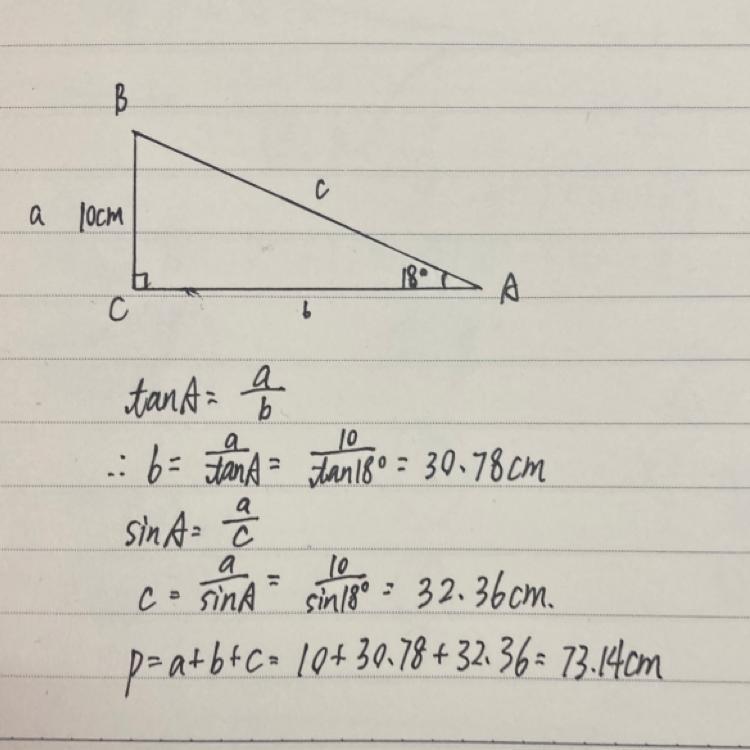 B
c
a 10cm
18°
A
C
b
tanA= a/b
∴ b= a/tanA = 10/tan18° = 30.78cm
sinA= a/c
c = a/sinA = 10/sin18° = 32.36cm.
p=a+b+c= 10+30.78+32.36= 73.14cm